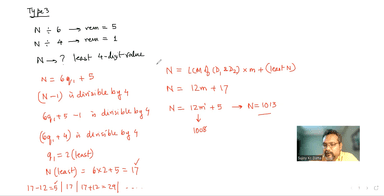 Type 3
N ÷ 6 → rem = 5
N ÷ 4 → rem = 1
N → ? least 4-digit value
N = 6q₁ + 5
(N-1) is divisible by 4
6q₁ + 5 - 1 is divisible by 4
(6q₁ + 4) is divisible by 4
q₁ = 2 (least)
N (least) = 6 x 2 + 5 = 17 ✓
17 - 12 = 5 | 17 | 17 + 12 = 29 | ...
N = LCM of (D₁ & D₂) x m + (least N)
N = 12m + 17
N = 12m + 5 → N = 1013
↓
1008